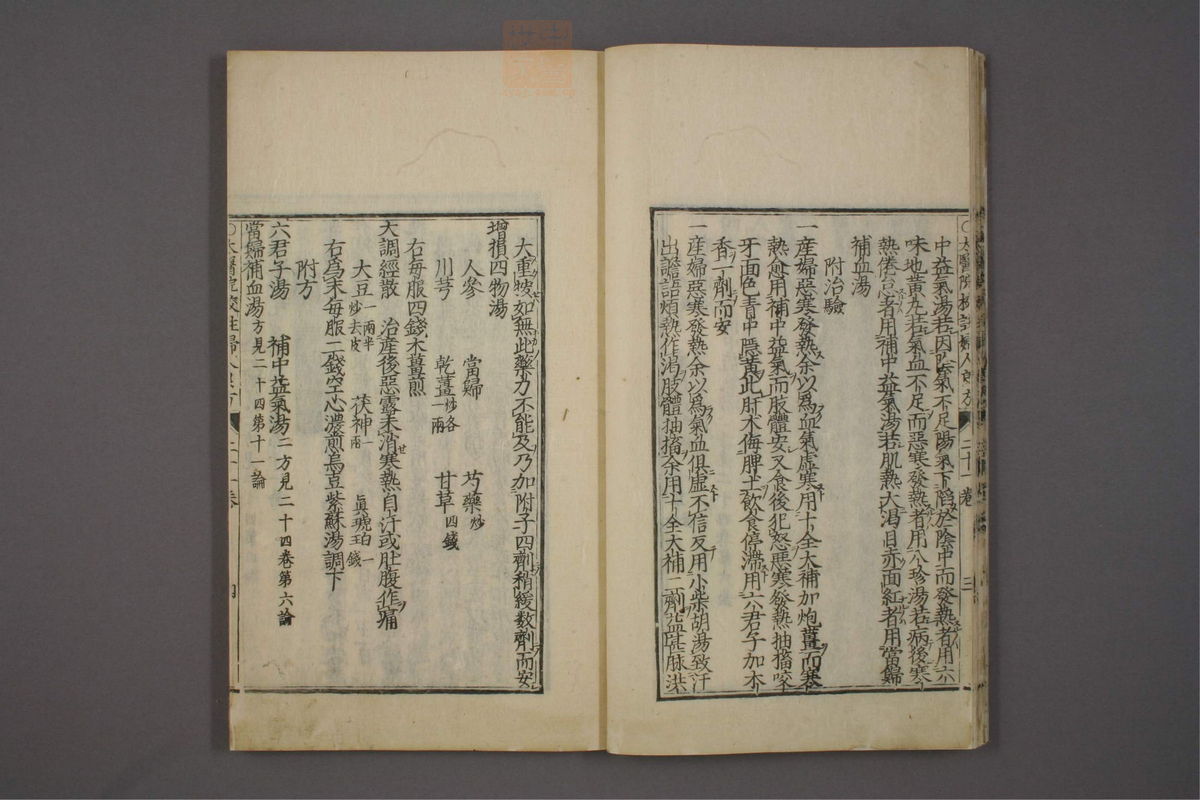 ○太醫院校註婦人良方　二十一卷　三
中益氣湯若因陰氣不足陽氣下陷於陰中而發熱者用六
味地黄丸若氣血不足而惡寒發熱者用八珍湯若病後寒
熱倦怠者用補中益氣湯若肌熱大渴目赤面紅者用當歸
補血湯
附治驗
一産婦惡寒發熱余以爲血氣虚寒用十全大補加炮薑而寒
熱愈用補中益氣而肢體安又食後犯怒惡寒發熱抽搐咬
牙面色青中隱黄此肝木侮脾土飲食停滯用六君子加木
香一劑而安
一産婦惡寒發熱余以爲氣血俱虚不信反用小柴胡湯致汗
出譫語煩熱作渴肢體抽搐余用十全大補二劑益甚脉洪
大重按如無此藥力不能及乃加附子四劑稍緩数劑而安
增損四物湯
人參　當歸　芍藥炒
川芎　乾薑炒各一兩　甘草四錢
右毎服四錢水薑煎
大調經散　治産後惡露未消寒熱自汗或肚腹作痛
大豆一兩半炒去皮　茯神一兩　眞琥珀一錢
右爲末毎服二錢空心濃煎烏豆紫蘇湯調下
附方
六君子湯　補中益氣湯二方見二十四卷第六論
當歸補血湯方見二十四第十一論
○太醫院校註婦人良方　二十一卷　四